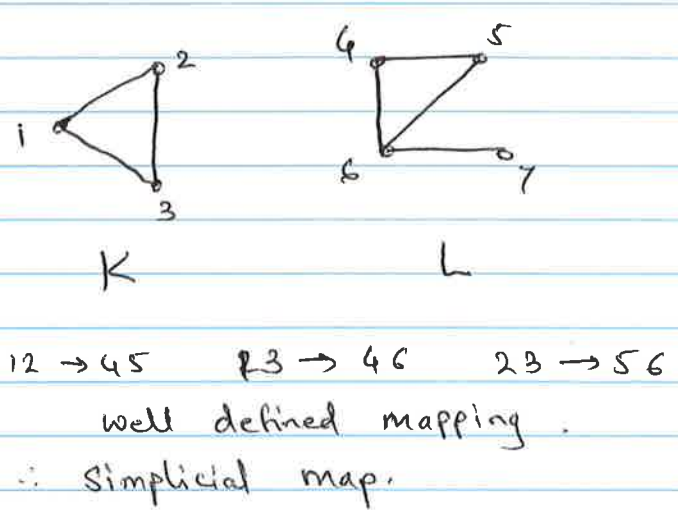 2
1
3
4
5
6
7
K
L
12 → 45 13 → 46 23 → 56
well defined mapping.
∴ Simplicial map.